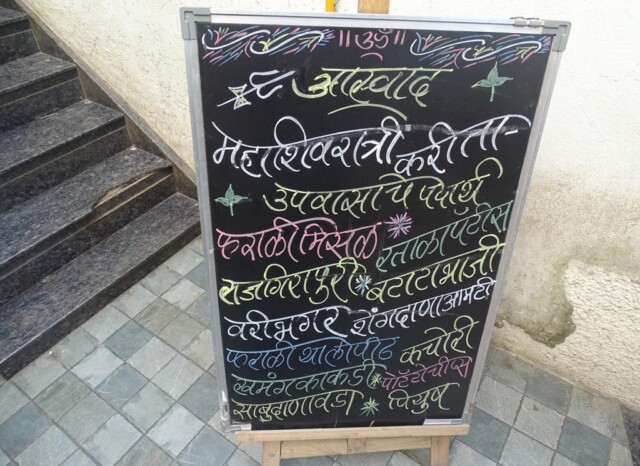 ॥ॐ॥
आस्वाद
महाशिवरात्री करीता-
उपवासाचे पदार्थ
फराळी मिसळ * रताळा पॅटीस
राजगिरा पुरी * बटाटा भाजी
वरी भगर शेंगदाणा आमटी
फराळी थालीपीठ कचोरी
खमंग काकडी * पोटॅटो चीप्स
साबुदाणा वडा * पियुष